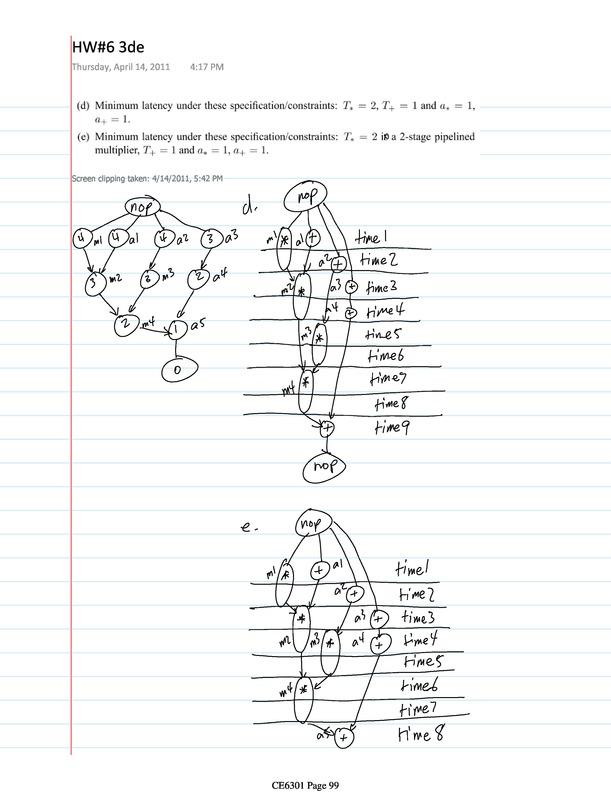 HW#6 3de
Thursday, April 14, 2011 4:17 PM
(d) Minimum latency under these specification/constraints: T* = 2, T+ = 1 and a* = 1,
a+ = 1.
(e) Minimum latency under these specification/constraints: T* = 2 in a 2-stage pipelined
multiplier, T+ = 1 and a* = 1, a+ = 1.
Screen clipping taken: 4/14/2011, 5:42 PM
nop
4 m1 4 a1 4 a2 3 a3
3 m2 3 m3 2 a4
2 m4 1 a5
0
d.
nop
m1 * a1 + time1
a2 + time2
m2 * a3 + time3
a4 + time4
m3 * time5
time6
m4 * time7
time8
+ time9
nop
e.
nop
m1 * + a1 time1
a2 + time2
* a3 + time3
m2 m3 * a4 + time4
time5
m4 * time6
time7
a5 + time8
CE6301 Page 99